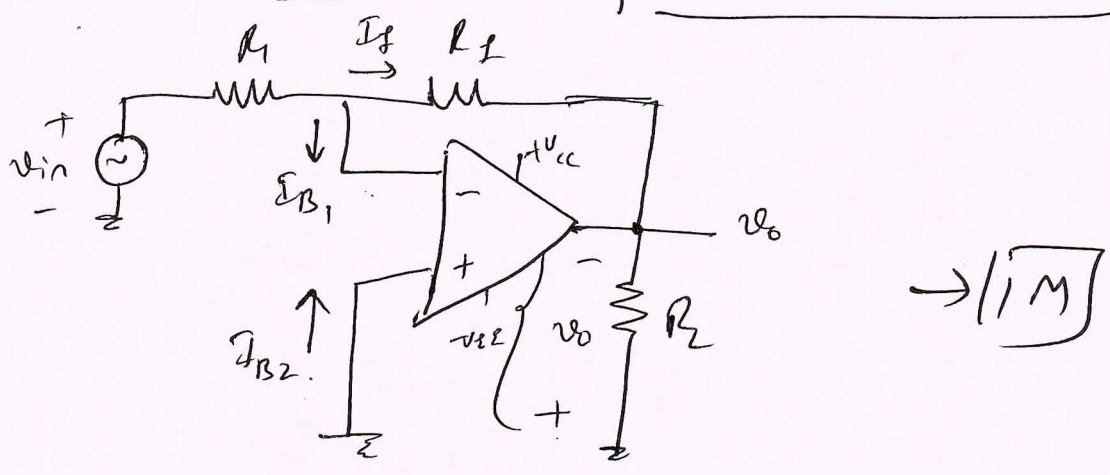 R1 If Rf
+
vin
-
IB1
- +Vcc
+
-VEE
IB2
vo
-
vo RL
+
→ 1M